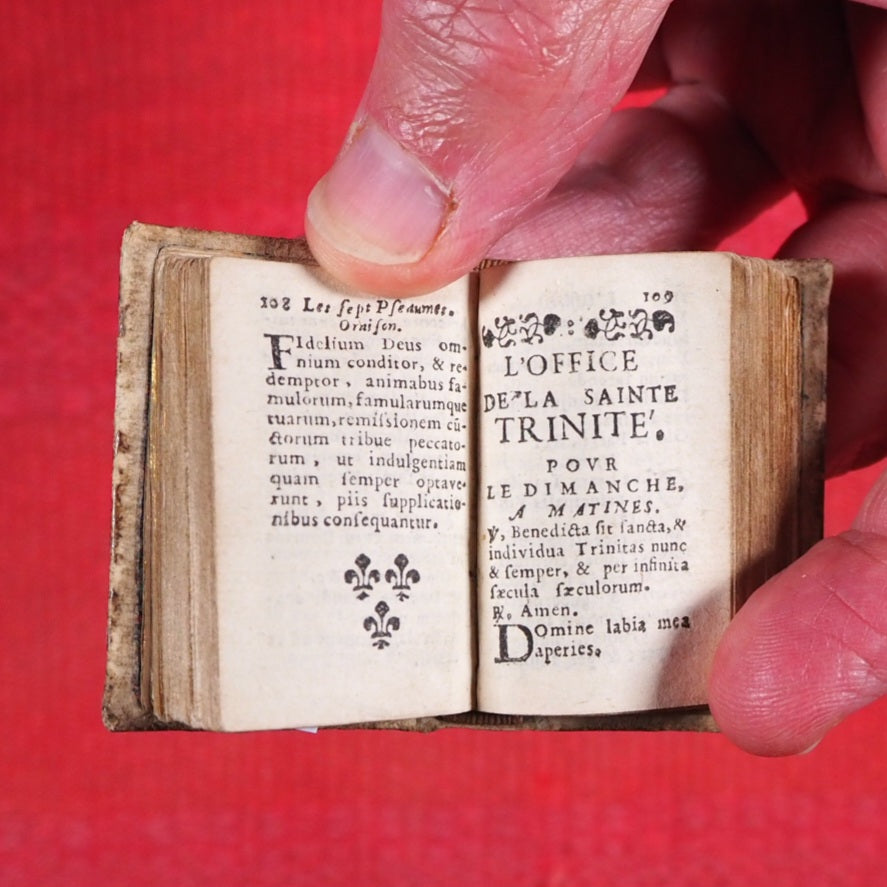 108 Les ſept Pſeaumes.
Oraiſon.
FIdelium Deus om-
nium conditor, & re-
demptor, animabus fa-
mulorum, famularumque
tuarum, remiſsionem cũ-
ctorum tribue peccato-
rum, ut indulgentiam
quam ſemper optave-
runt, piis ſupplicatio-
nibus conſequantur.
109
L'OFFICE
DE LA SAINTE
TRINITE'.
POVR
LE DIMANCHE,
A MATINES.
℣. Benedicta ſit ſancta, &
individua Trinitas nunc
& ſemper, & per infinita
ſæcula ſæculorum.
℟. Amen.
DOmine labia mea
aperies.